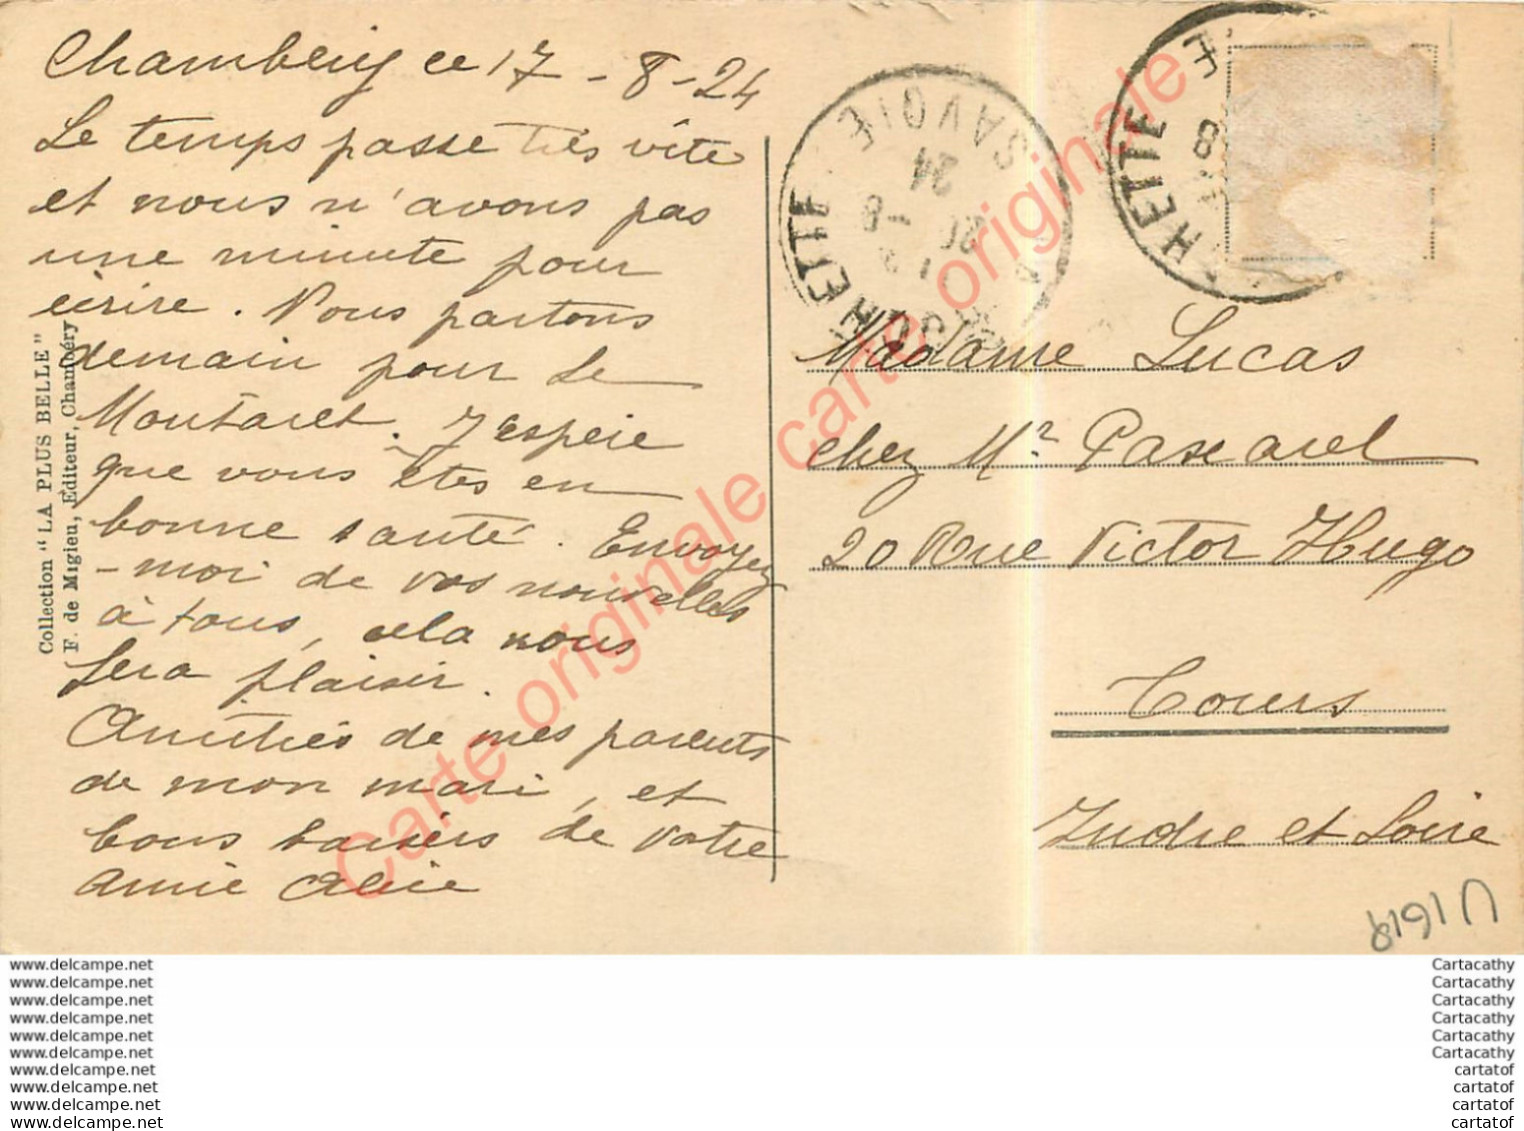 Chambéry ce 17-8-24
Le temps passe très vite
et nous n'avons pas
une minute pour
écrire. Nous partons
demain pour Le
Moutaret. J'espère
que vous êtes en
bonne santé. Envoyez
-moi de vos nouvelles
à tous, cela nous
fera plaisir.
Amitiés de mes parents
de mon mari, et
bons baisers de votre
amie Alice
Collection "LA PLUS BELLE"
F. de Migieu, Éditeur, Chambéry
SAVOIE
20 -8
24
HETTE
Madame Lucas
chez Mr Pascarel
20 Rue Victor Hugo
Tours
Indre et Loire
V1618
Carte originale carte originale
www.delcampe.net
www.delcampe.net
www.delcampe.net
www.delcampe.net
www.delcampe.net
www.delcampe.net
www.delcampe.net
www.delcampe.net
www.delcampe.net
www.delcampe.net
Cartacathy
Cartacathy
Cartacathy
Cartacathy
Cartacathy
Cartacathy
cartatof
cartatof
cartatof
cartatof